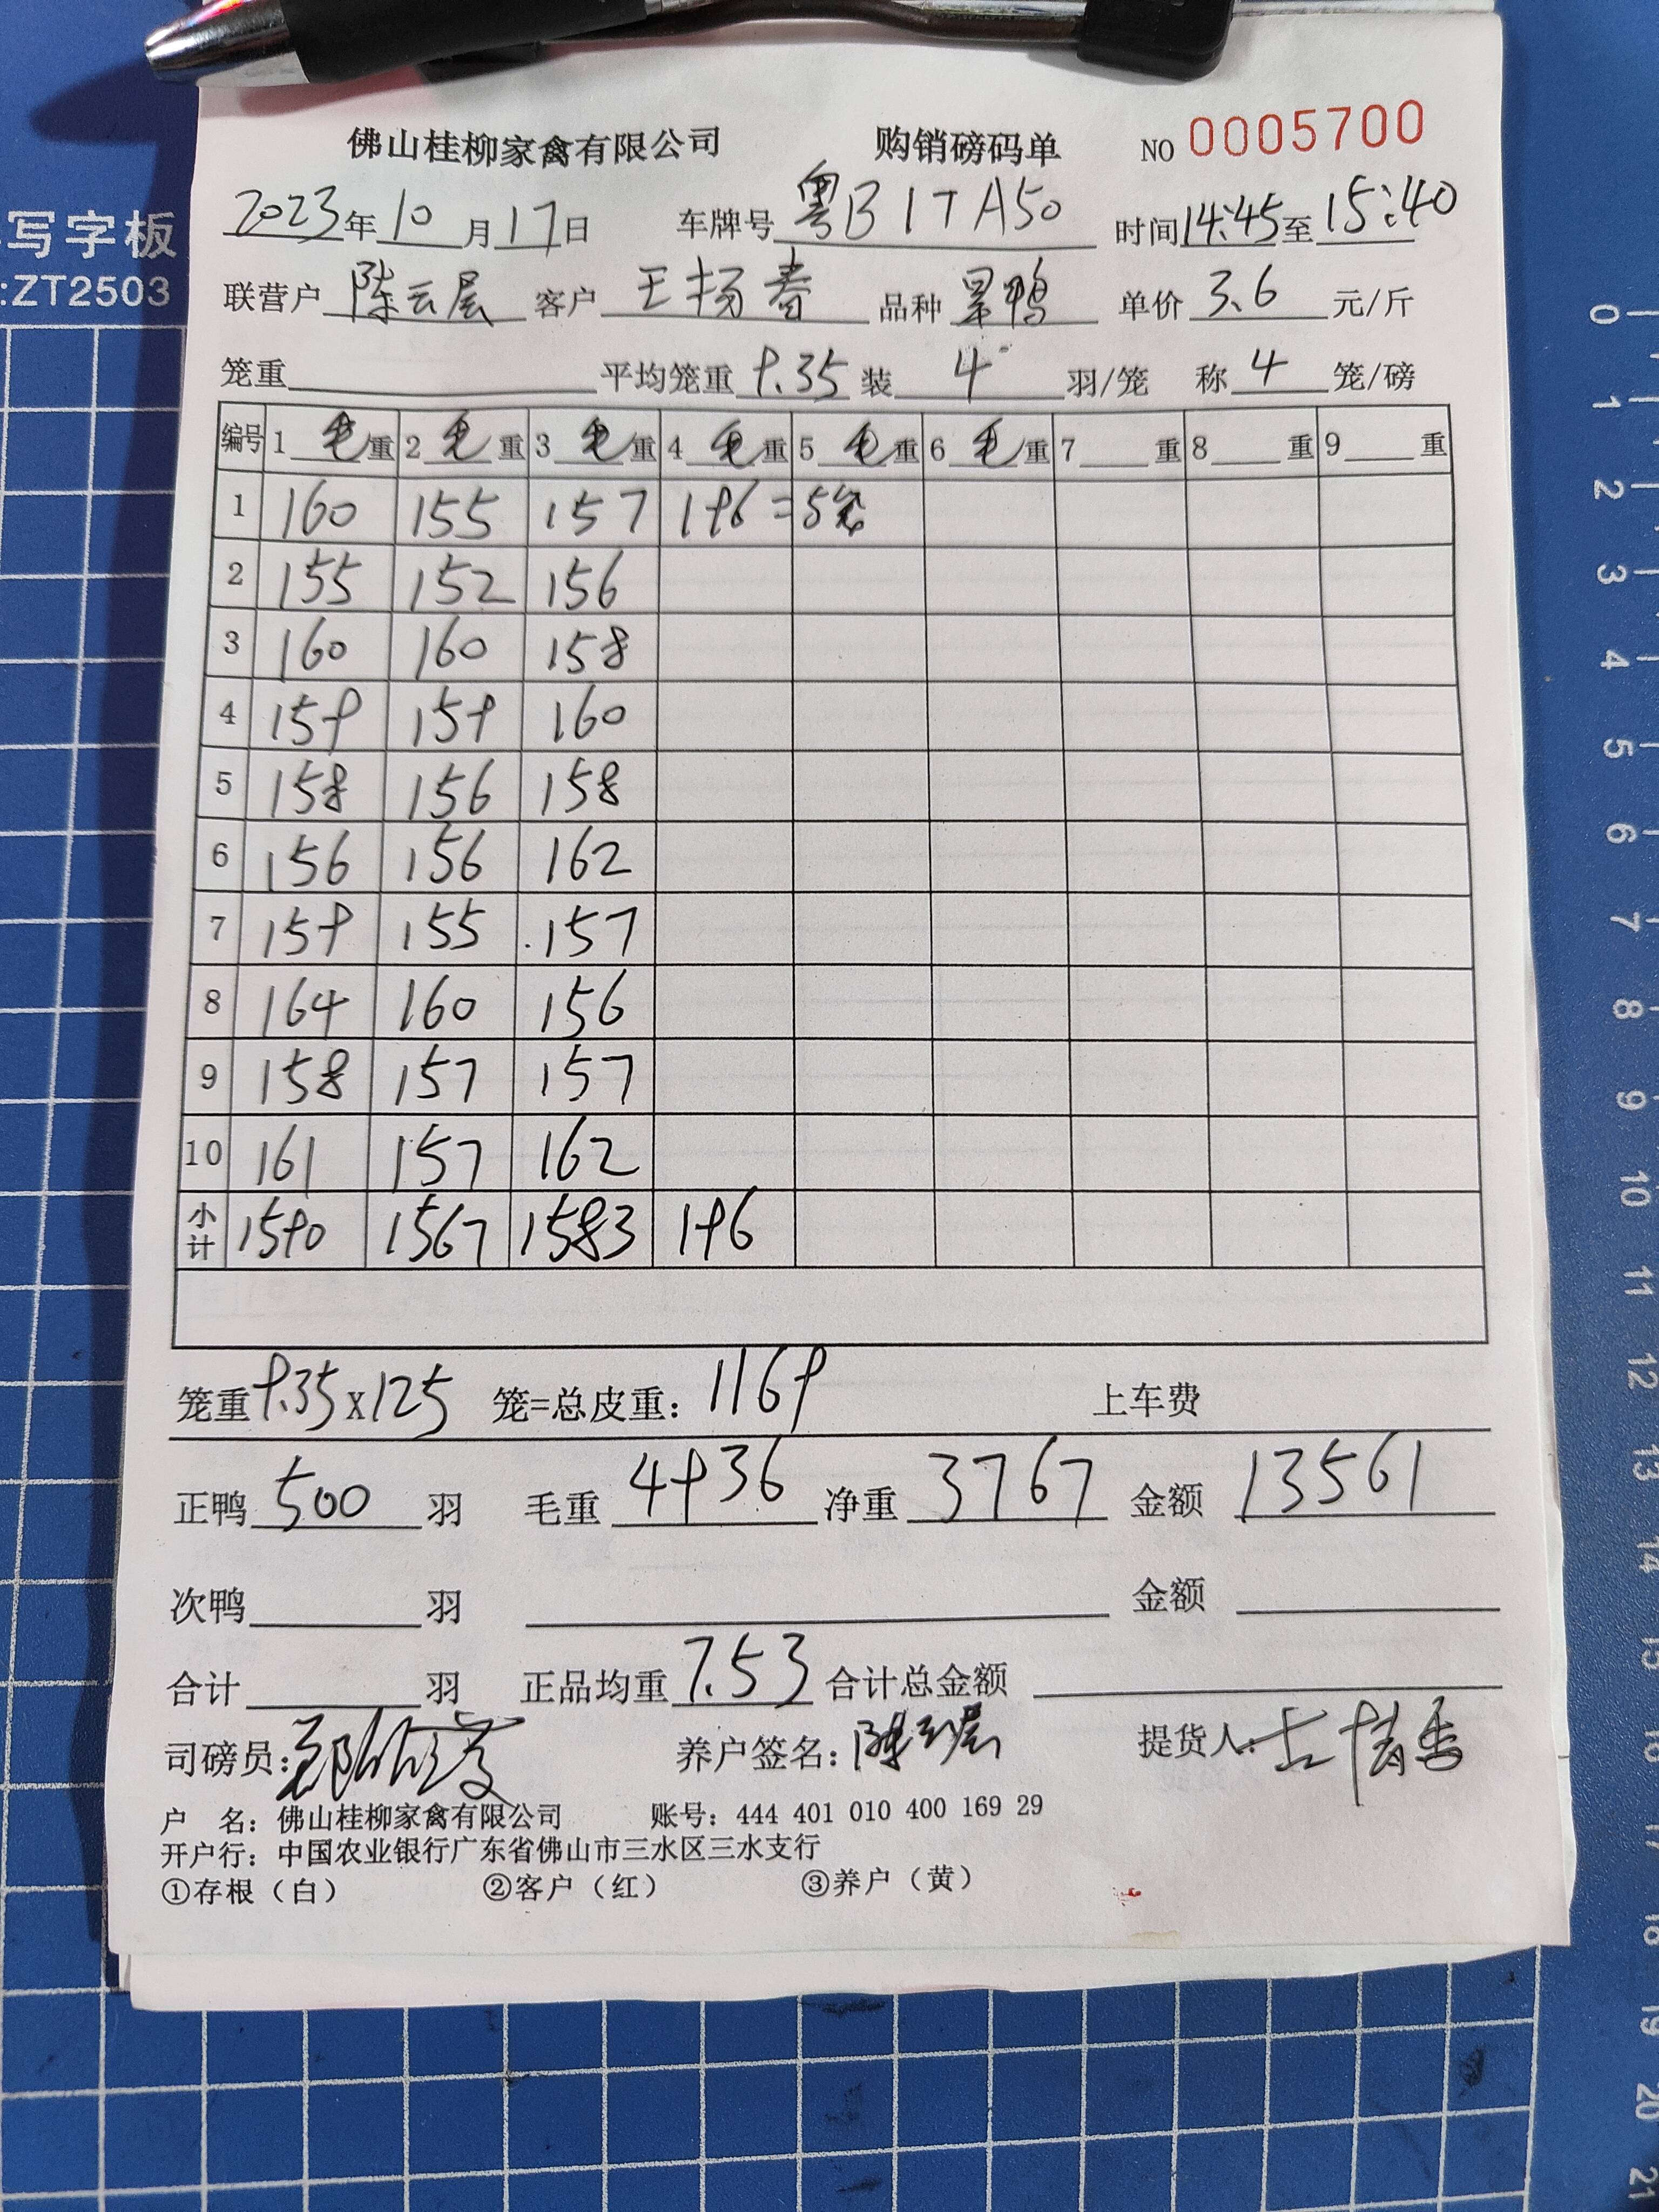 佛山桂柳家禽有限公司 购销磅码单 NO 0005700
2023年10月17日 车牌号 粤B1TA50 时间14:45至15:40
写字板
:ZT2503
联营户 陈云层 客户 王扬春 品种 累鸭 单价 3.6 元/斤
笼重 平均笼重 9.35 装 4 羽/笼 称 4 笼/磅
编号 1 毛重 2 毛重 3 毛重 4 毛重 5 毛重 6 毛重 7 重 8 重 9 重
1 160 155 157 196=5笼
2 155 152 156
3 160 160 158
4 159 159 160
5 158 156 158
6 156 156 162
7 159 155 157
8 164 160 156
9 158 157 157
10 161 157 162
小计 1590 1567 1583 196
笼重9.35x125 笼=总皮重：1169 上车费
正鸭 500 羽 毛重 4936 净重 3767 金额 13561
次鸭 羽 金额
合计 羽 正品均重 7.53 合计总金额
司磅员： 养户签名：陈云层 提货人：
户 名：佛山桂柳家禽有限公司 账号：444 401 010 400 169 29
开户行：中国农业银行广东省佛山市三水区三水支行
①存根（白） ②客户（红） ③养户（黄）
0
1
2
3
4
5
6
7
8
9
10
11
12
13
14
15
16
17
18
19
20
21